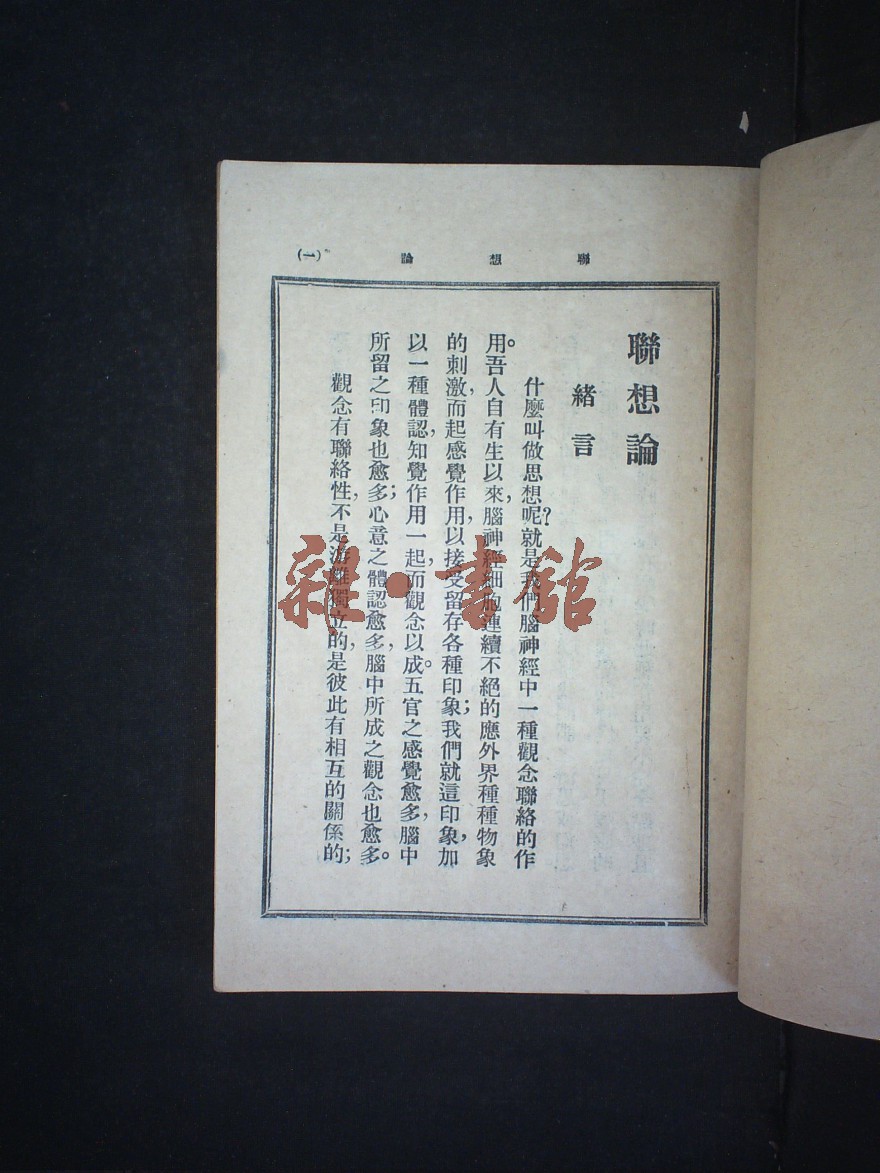 聯想論 (一)
聯想論
緒言
什麼叫做思想呢?就是我們腦神經中一種觀念聯絡的作
用。吾人自有生以來,腦神經細胞連續不絕的應外界種種物象
的刺激,而起感覺作用,以接受留存各種印象;我們就這印象,加
以一種體認,知覺作用一起,而觀念以成。五官之感覺愈多,腦中
所留之印象也愈多;心意之體認愈多,腦中所成之觀念也愈多。
觀念有聯絡性,不是游離獨立的,是彼此有相互的關係的;
雜·書館